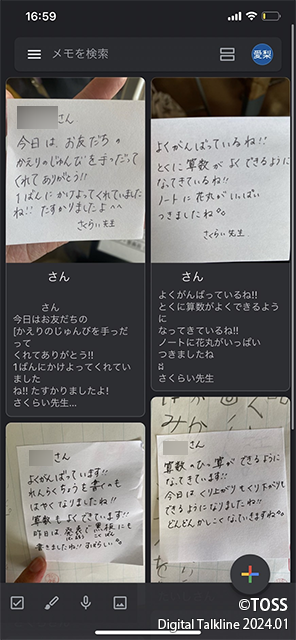 16:59
メモを検索
愛梨
さん
今日は、お友だちの
かえりのじゅんびを手つだって
くれてありがとう!!
1ばんにかけよってくれていました
ね!! たすかりましたよ^^
さくらい先生
よくがんばっているね!!
とくに算数がよくできるように
なってきているね!!
ノートに花丸がいっぱい
つきましたね°。
さくらい先生
さん
さん
今日はお友だちの
[かえりのじゅんびを手っだ
って
くれてありがとう!!
1ばんにかけよってくれてい
ました
ね!! たすかりましたよ!
さくらい先生...
さん
よくがんばっているね!!
とくに算数がよくできるよう
に
なってきているね!!
ノートに花丸がいっぱい
つきましたね
さくらい先生
さん
よくがんばっています!!
れんらくちょうを書くのも
はやくなりましたね!!
算数もよくできています!!
昨日は発表で黒板にも
書きましたね!! すばらしい°。
さん
算数のひっ算ができるように
なってきています!
今日はくり上がりもくり下がりも
できるようになりました!!
どんどんかしこくなっていきますね°。
©TOSS
Digital Talkline 2024.01